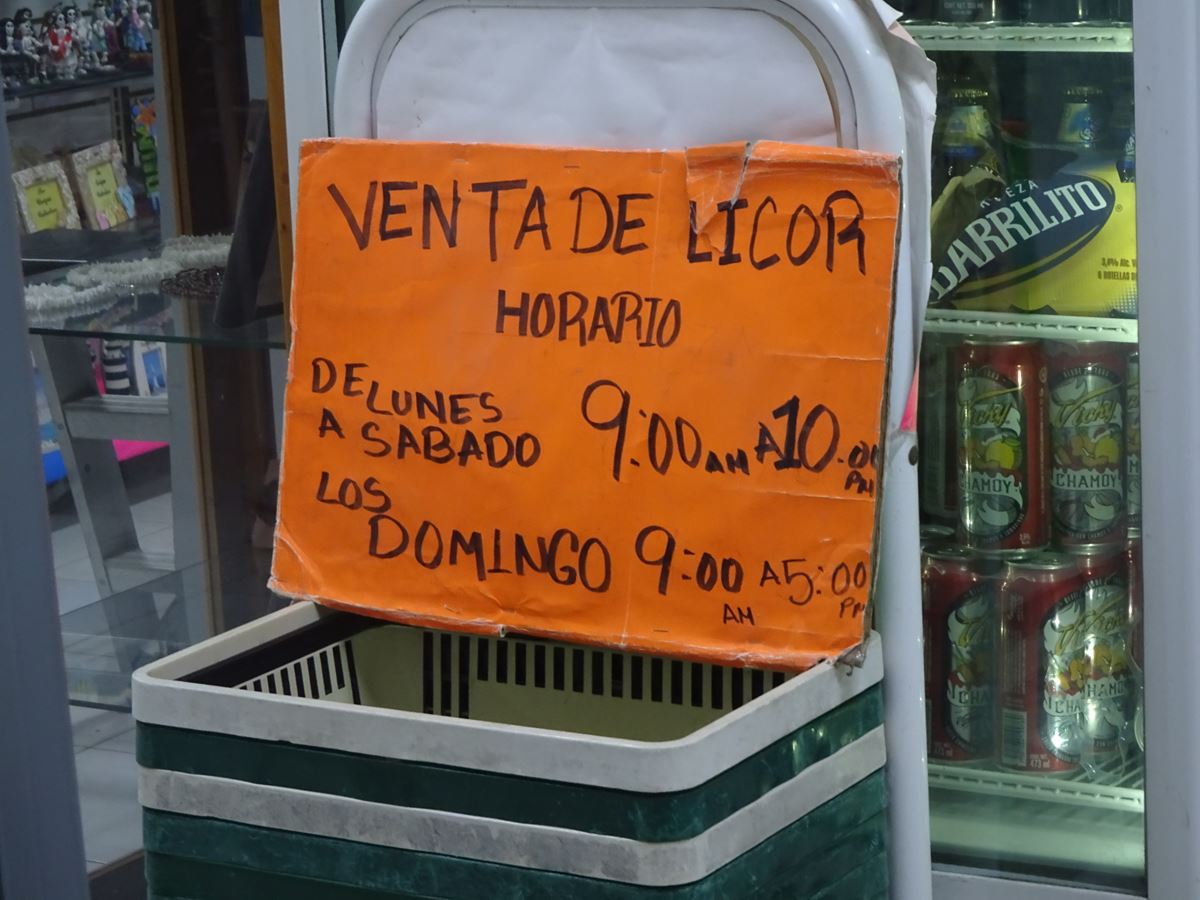 VENTA DE LICOR
HORARIO
DE LUNES
A SABADO 9:00 AM A 10:00 PM
LOS
DOMINGO 9:00 AM A 5:00 PM
CERVEZA
BARRILITO
Vicky
CHAMOY
Vicky
CHAMOY
CHAMOY
473 ml